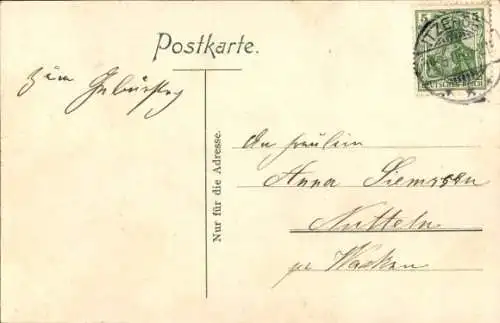 Postkarte.
Zum Geburtstag
Nur für die Adresse.
An Fräulein
Anna Siemssen
Nutteln
pr Wacken
5
DEUTSCHES REICH